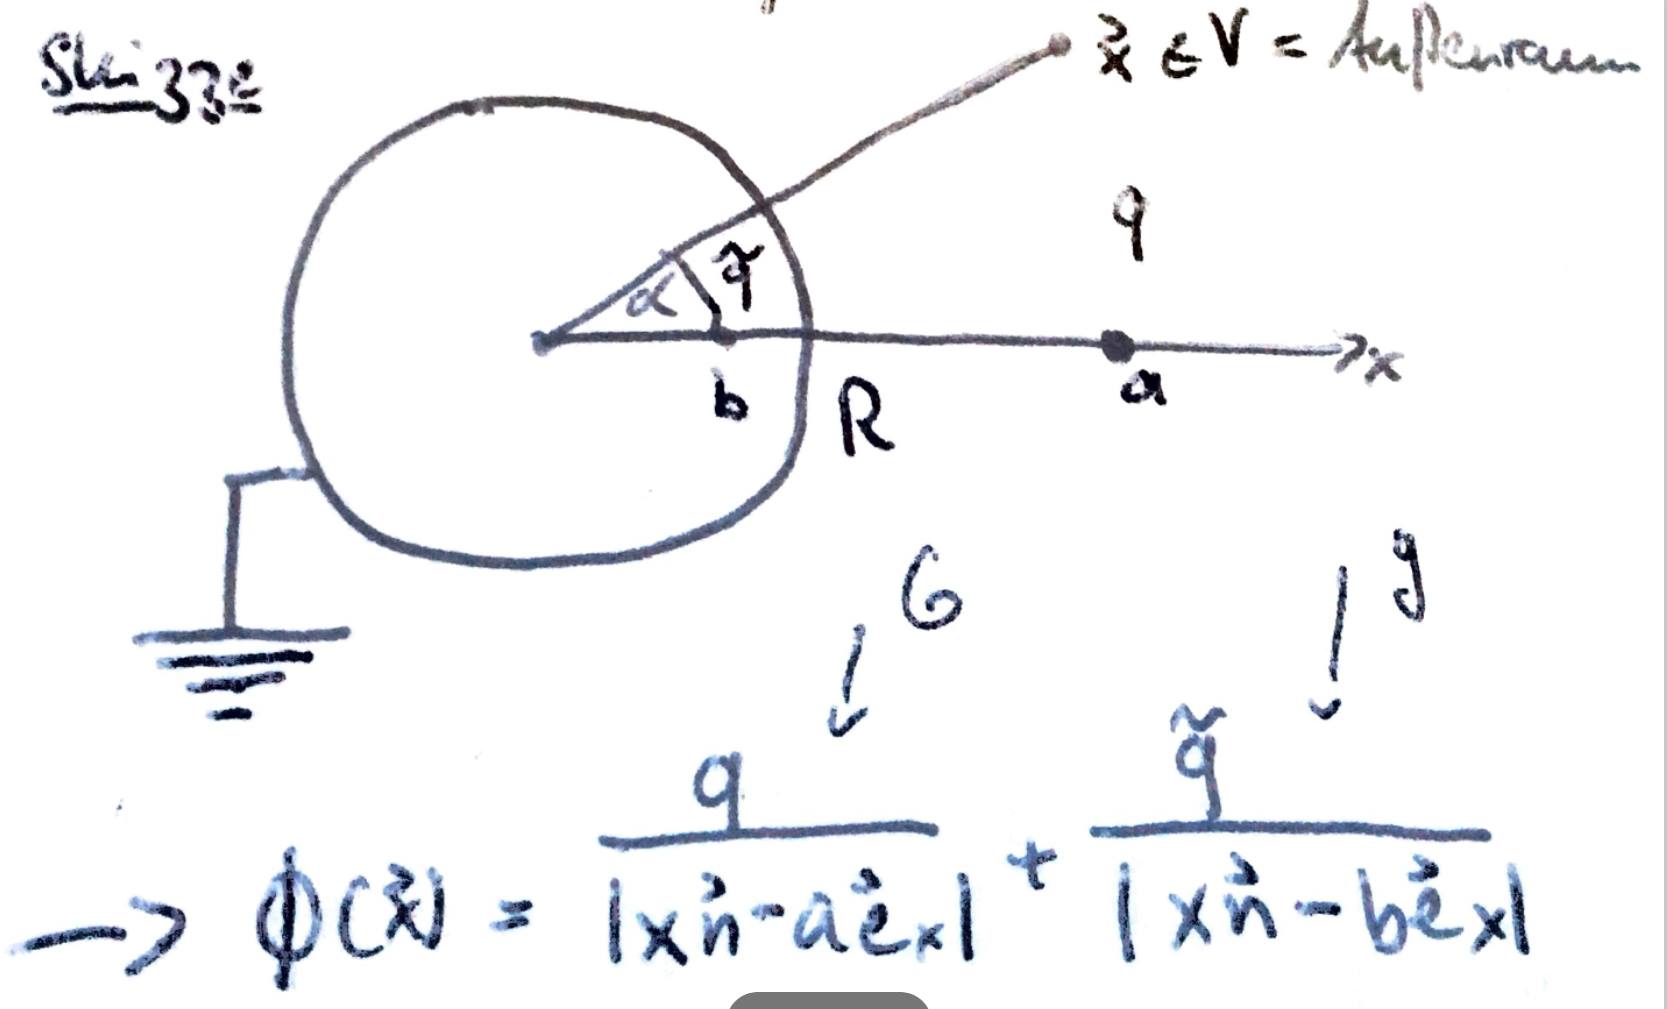 Skizze
x⃗ ∈ V = Außenraum
q
α q̃
b R a x
G g
→ ϕ(x⃗) = q / |xn⃗ - ae⃗ₓ| + q̃ / |xn⃗ - be⃗ₓ|